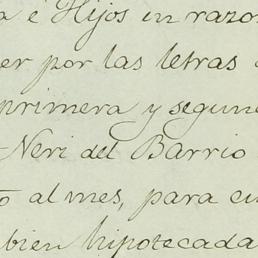 a é Hijos in razon
er por las letras
primera y segun
Neri del Barrio
al mes, para
bien hipotecada